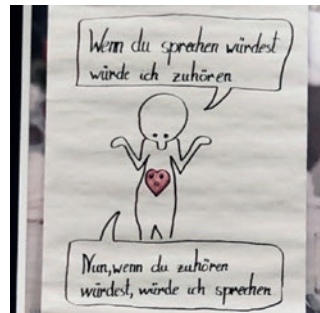 Wenn du sprechen würdest
würde ich zuhören
Nun, wenn du zuhören
würdest, würde ich sprechen